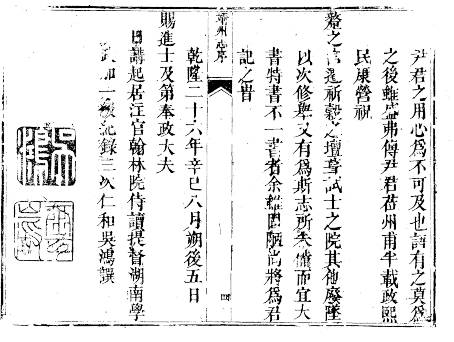 尹君之用心為不可及也語有之莫為
之後雖盛弗傳尹君蒞州甫半載政熙
民康營祝
釐之宮退祈穀之壇葺試士之院其他廢墜
以次修舉又有為斯志所未備而宜大
書特書不一書者余雖固陋尚將為君
記之
靖州志序
四
乾隆二十六年辛巳八月朔後五日
賜進士及第奉政大夫
日講起居注官翰林院侍讀提督湖南學
政加一級紀錄三次仁和吳鴻譔